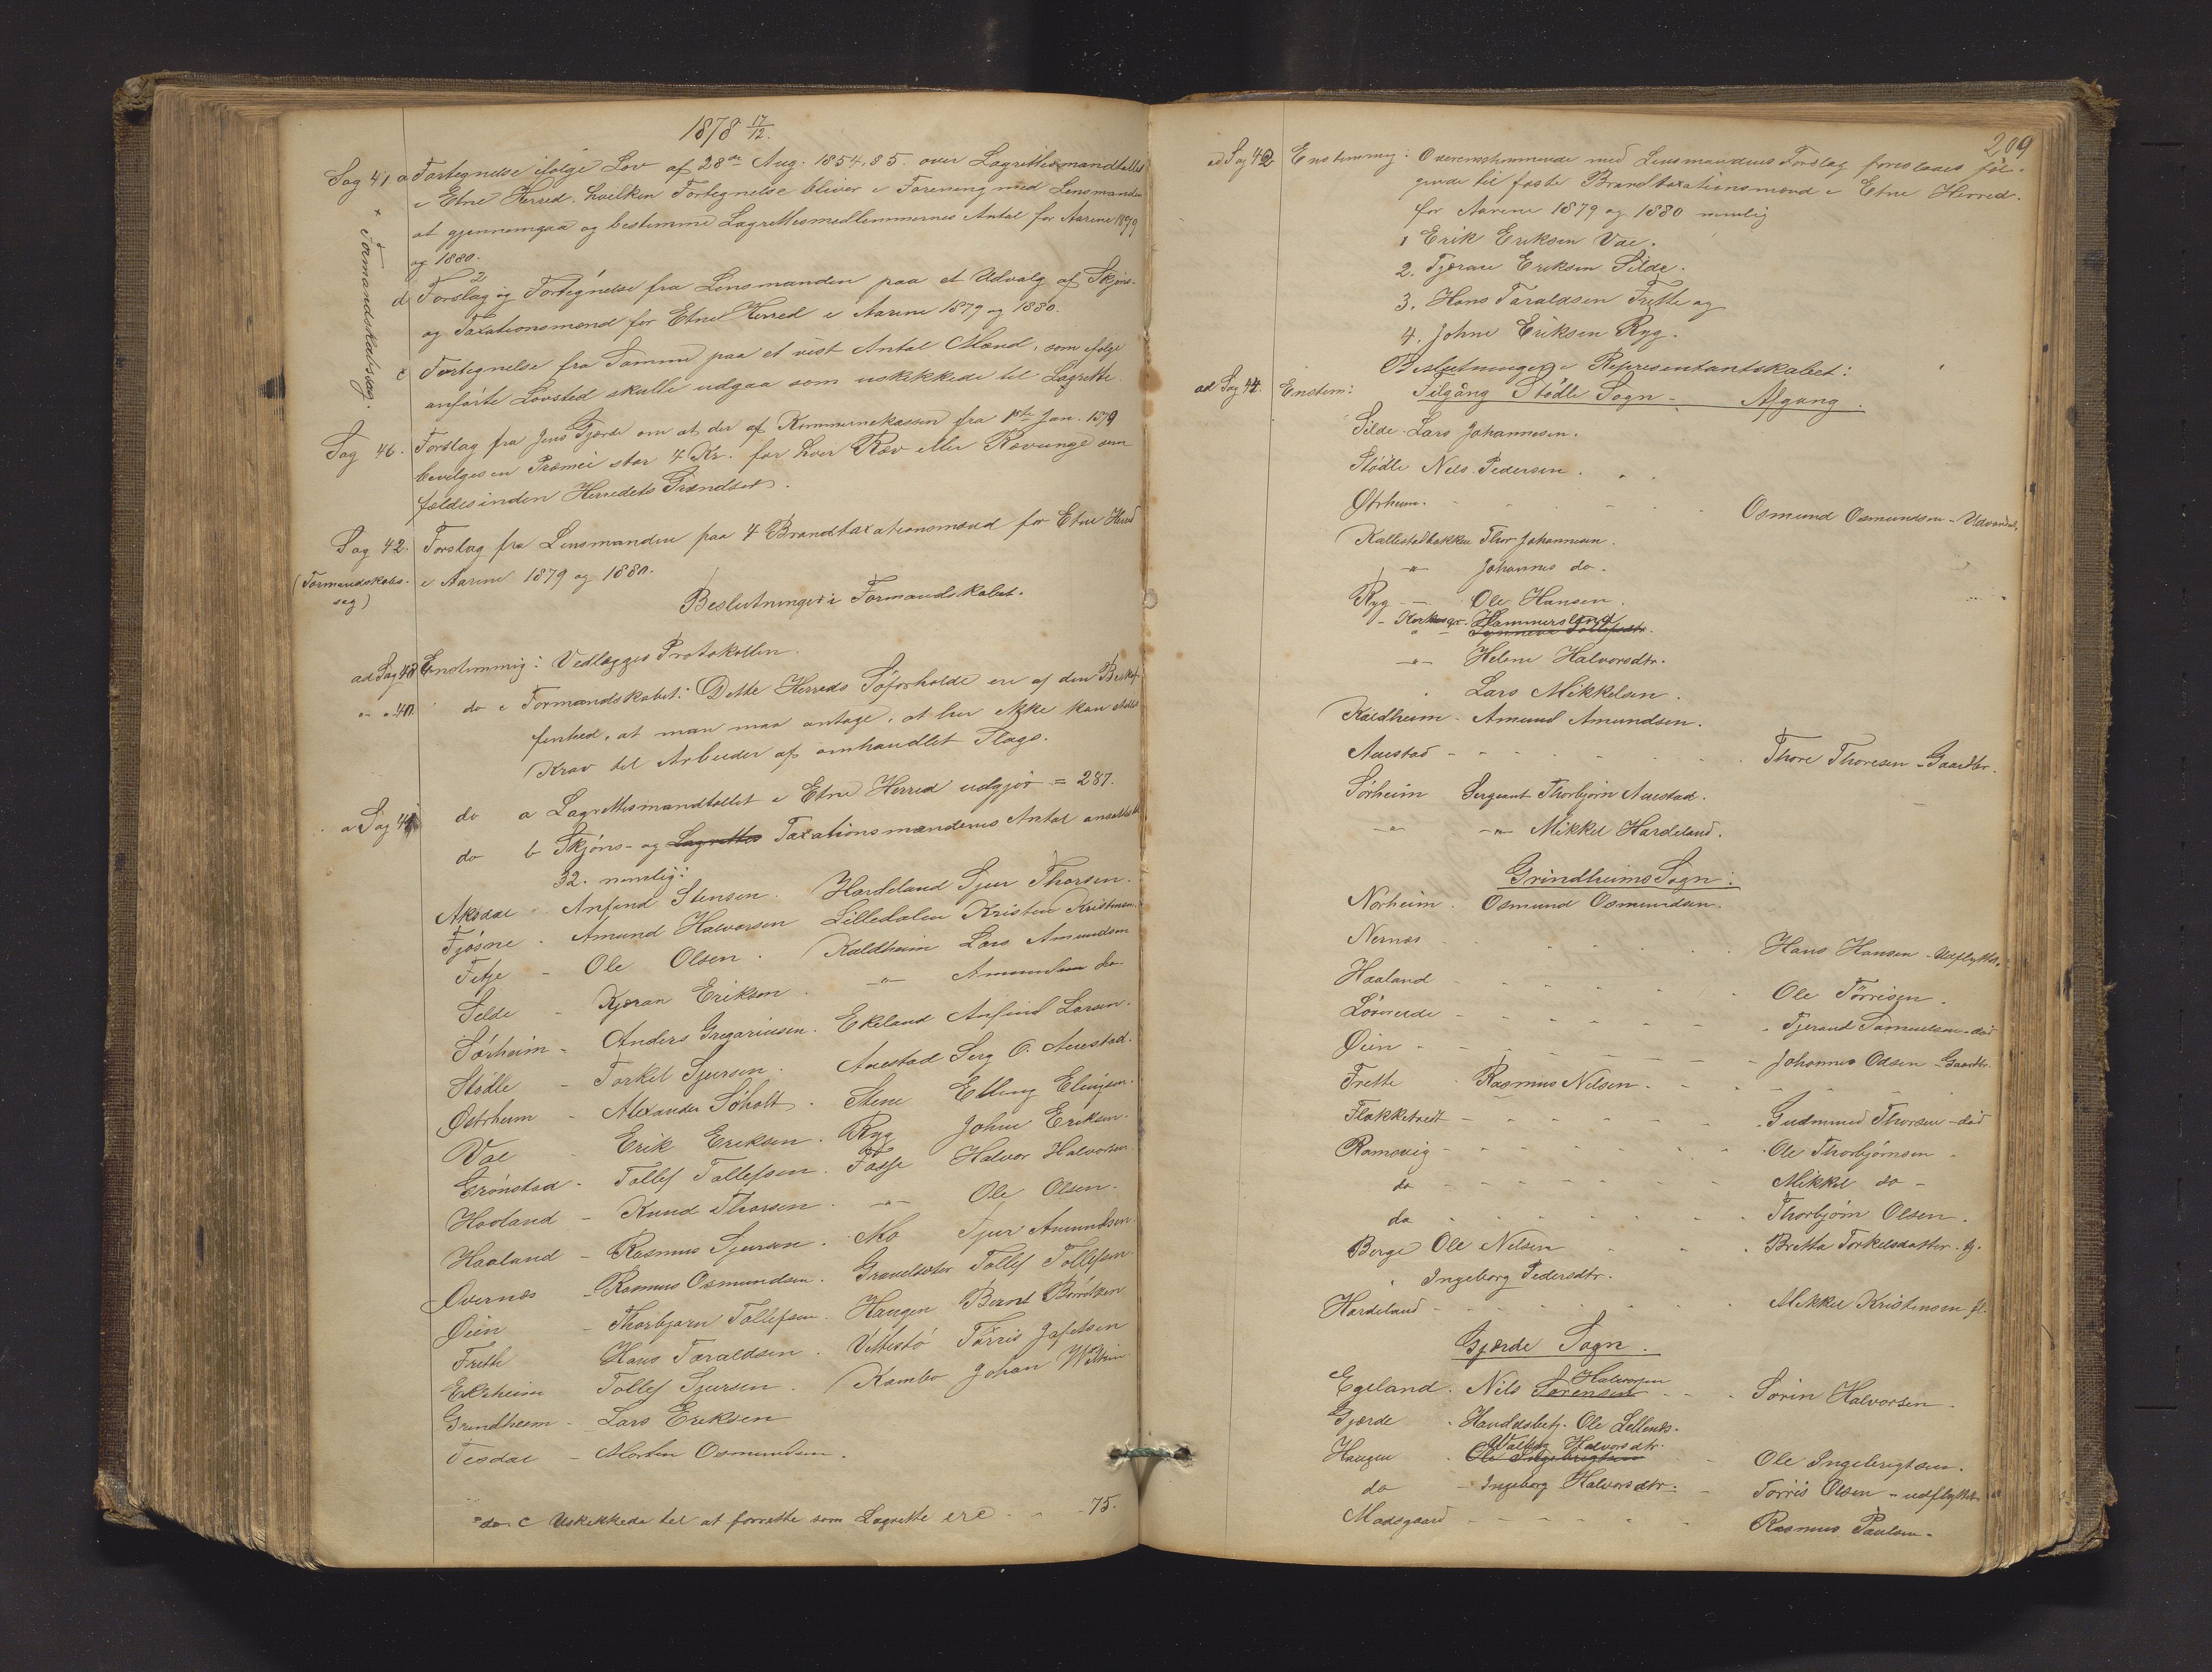 1878 17/12.
Sag 41 a Fortegnelse ifølge Lov af 28de Aug. 1854, § 5. over Lagrettesmandtallet
i Etne Herred. hvelken Fortegnelse bliver i Forening med Lensmanden
at gjennemgaa og bestemme Lagrettesmedlemmernes Antal for Aarene 1879
og 1880.
× Formandskabssag.
d Forslag og Fortegnelse fra Lensmanden paa et Udvalg af Skjøns-
og Taxationsmænd for Etne Herred i Aarene 1879 og 1880.
c Fortegnelse fra Samme paa et vist Antal Mænd, som ifølge
anførte Lovsted skulle udgaa som uskikkede til Lagrette.
Sag 46. Forslag fra Jens Gjerde om at der af Kommunekassen fra 1ste Jan. 1879
bevilges en Præmie stor 4 Kr. for hver Ræv eller Rævunge som
fældes inden Herredets Grændser.
Sag 42. Forslag fra Lensmanden paa 4 Brandtaxationsmænd for Etne Herred
(Formandskabs- i Aarene 1879 og 1880.
sag)
Beslutninger i Formandskabet.
ad Sag Enstemmig: Vedlægges Protokollen.
" " 40. do i Formandskabet: Dette Herreds Søforholde ere af den Beskaf-
fenhed, at man maa antage, at her ikke kan stilles
Krav til Arbeider af omhandlet Slags.
a Sag 41 do a Lagrettesmandtallet i Etne Herred udgjør = 287.
do b Skjøns- og Lagrettes Taxationsmændenes Antal ansættes til
32. nemlig:
Aksdal Anfind Stensen. Hardeland Sjur Thorsen.
Fjøsne. Amund Halvorsen Lilledalen Kristen Kristensen.
Fitje - Ole Olsen. Kaldheim Lars Amundsen
Silde - Kjeran Eriksen. -"- Amund do
Sørheim - Anders Gregoriusen. Ekeland Anfind Larsen.
Stødle - Torkel Sjursen. Auestad Serg O. Auestad.
Østrheim - Alexander Søholt. Stene Elling Elingsen.
Vae - Erik Eriksen. Ryg Johne Eriksen.
Grønstad - Tollef Tollefsen. Fosse Halvor Halvorsen
Haaland - Knud Thorsen. -"- Ole Olsen.
Haaland - Rasmus Sjursen. Mo Sjur Amundsen.
Øvernæs - Rasmus Osmundsen. Gravelseter Tollef Tollefsen.
Øien - Thorbjørn Tollefsen. Haugen Bernt
Frette Hans Taraldsen. Vettestø Tørris Jafetsen
Ekrheim Tollef Sjursen. Kambo Johan
Grindheim - Lars Eriksen
Tesdal - Morten Osmundsen.
do c Uskikkede til at forrette som Lagrette ere - - 75.
209
ad Sag 42 Enstemmig: Overensstemmende med Lensmandens Forslag foreslaaes føl-
gende til faste Brandtaxationsmænd i Etne Herred.
for Aarene 1879 og 1880 nemlig
1 Erik Eriksen Vae.
2. Tjeran Eriksen Silde.
3. Hans Taraldsen Frette og
4. Johne Eriksen Ryg.
Beslutninger i Representantskabet:
ad Sag 44. Enstem: Tilgang Stødle Sogn - Afgang.
Silde. Lars Johannesen.
Stødle Nels Pedersen.
Østrheim. Osmund Osmundsen - Udvandret
Kallestadbakken Thor Johannesen.
-"- Johannes do.
Ryg - Ole Hansen.
- Hammersland
Synneva Tollefsdtr.
-"- Helene Halvorsdtr.
Lars Mikkelsen.
Kaldheim - Amund Amundsen.
Auestad - - - Thore Thoresen - Gaardbr.
Sørheim Sergeant Thorbjørn Auestad.
-"- -"- Mikkel Hardeland.
Grindheims Sogn:
Nørheim. Osmund Osmundsen.
Nernæs Hans Hansen - Udflyttet
Haaland Ole Tørrisen.
Tjerand Samuelsen - død
Øien - - - Johannes Odsen - Gaardbr.
Frette Rasmus Nelsen.
Flakketvedt - - - Gudmund Thorsen - død
Ramsvig - - - Ole Thorbjørnsen -
do - - - Mikkel do -
do Thorbjørn Olsen.
Berge Ole Nelsen Bretta Torkelsdatter. g.
" Ingeborg Pedersdtr.
Hardeland - - - Mikkel Kristensen fl.
Gjerde Sogn.
Halvorsen
Egeland. Nils Sørensen - - - Sørin Halvorsen.
Gjerde . Handelsbetj. Ole Lellends.
Walborg Halvorsdtr.
Haugen . Ole Ingebrigtsen Ole Ingebrigtsen.
do - Ingeborg Halvorsdtr. - Tørris Olsen - udflyttet
Madsgaard - - - Rasmus Paulsen -